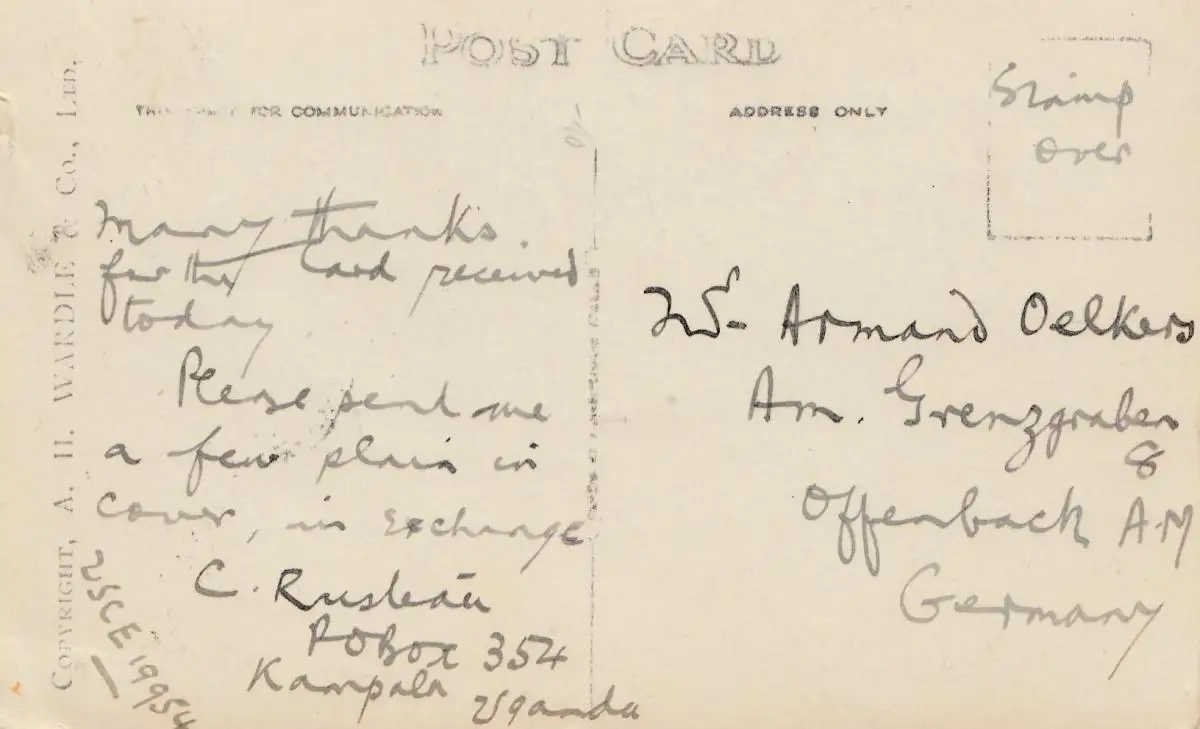 POST CARD
FOR COMMUNICATION
ADDRESS ONLY
Stamp
over
COPYRIGHT, A. H. WARDLE & CO., LTD.
Many thanks.
for the card received
today
Please send me
a few plain in
cover, in exchange
C.
P O Box 354
Kampala Uganda
Armand Oelkers
Am. Grenzgraben
8
Offenback A.M
Germany